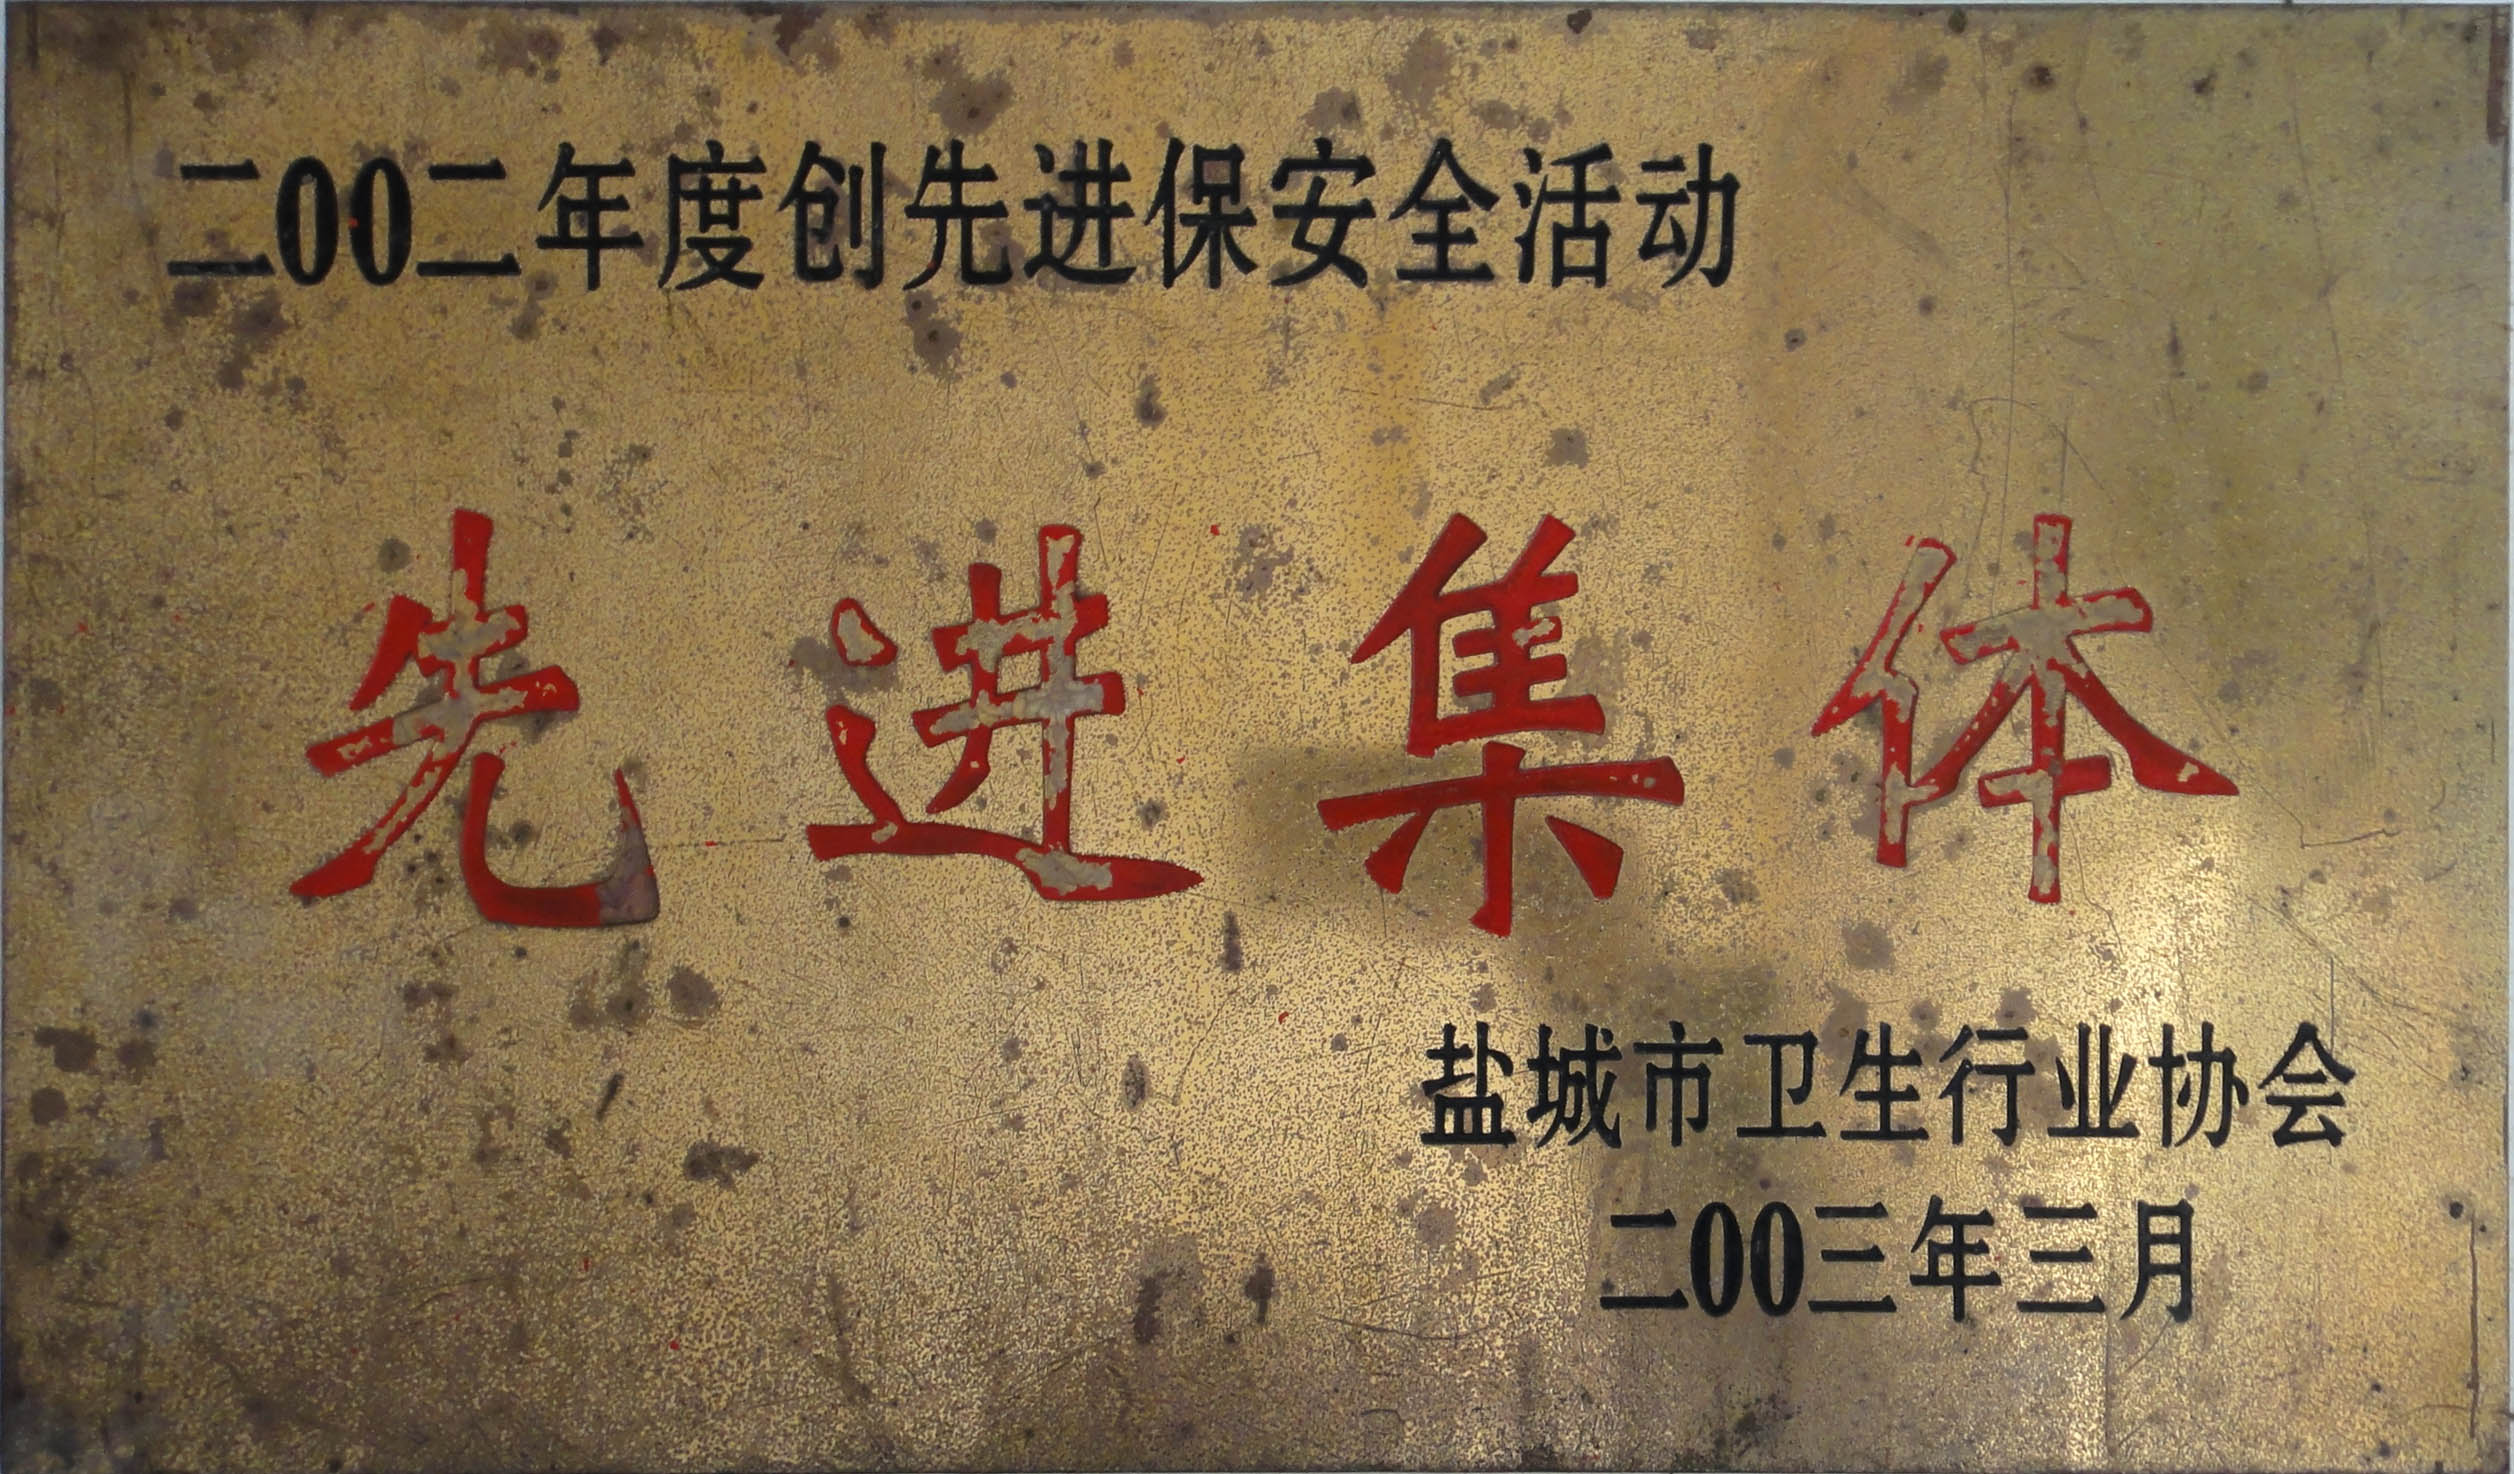 二00二年度创先进保安全活动
先进集体
盐城市卫生行业协会
二00三年三月